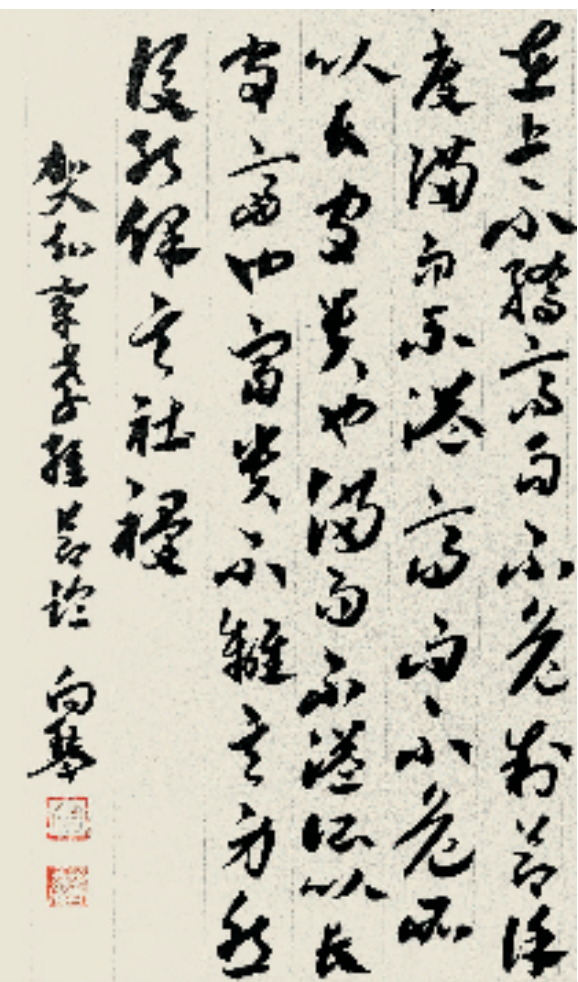 在上不驕高而不危制節謹
度滿而不溢高而不危所
以長守貴也滿而不溢所以長
守富也富貴不離其身然
後能保其社稷
賀知章孝經節臨 向琴